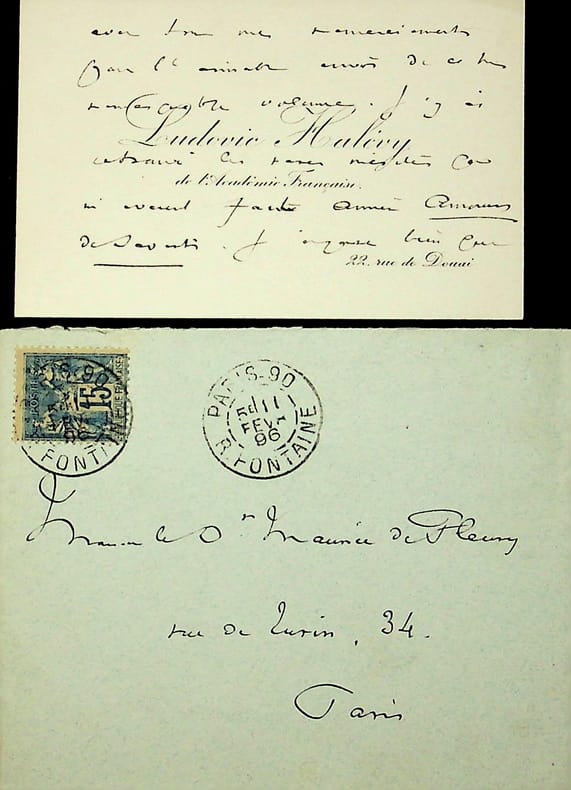 avec tous mes remerciements
pour l'aimable envoi de ce très
remarquable volume. J'y ai
Ludovic Halévy
retrouvé les rares
de l'Académie Française.
qui avaient fait aimer Amours
de Savants. J'espère bien que
22, rue de Douai
15
PARIS-90
R. FONTAINE
96
PARIS-90
5E 11
FEVR
96
R. FONTAINE
Monsieur le Dr Maurice de Fleury
rue de Turin, 34.
Paris